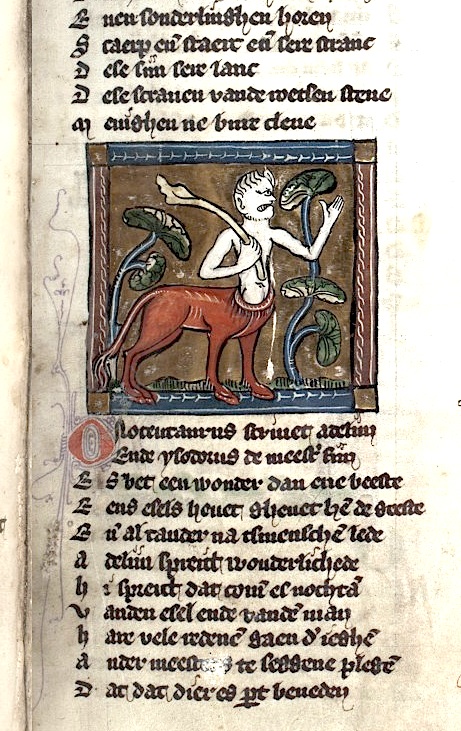 E nen sonderlinghen horen
S caerp en̄ staerc en̄ sere stranc
D ese sijn sere lanc
D ese scrauen vande roetsen stene
M enighen ne bure clene
O nocentaurus scriuet adelijn
Ende ysodorus de meester sijn
E s bet een wonder dan ene beeste
E ens esels houet gheuet hē de geeste
E n̄ al tander na tsmenschē lede
A delijn spreict wonderlichede
H i spreict dat comē es nochtā
V anden esel ende vandē man
H are vele redenē gaen d' ieghē
A nder meesters te seggene pleghē
D at dat dier es pert beneden